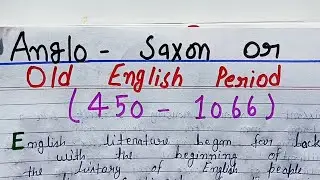 Anglo - Saxon or
Old English Period
(450 - 1066)
English literature began far back
with the beginning of
the history of English people